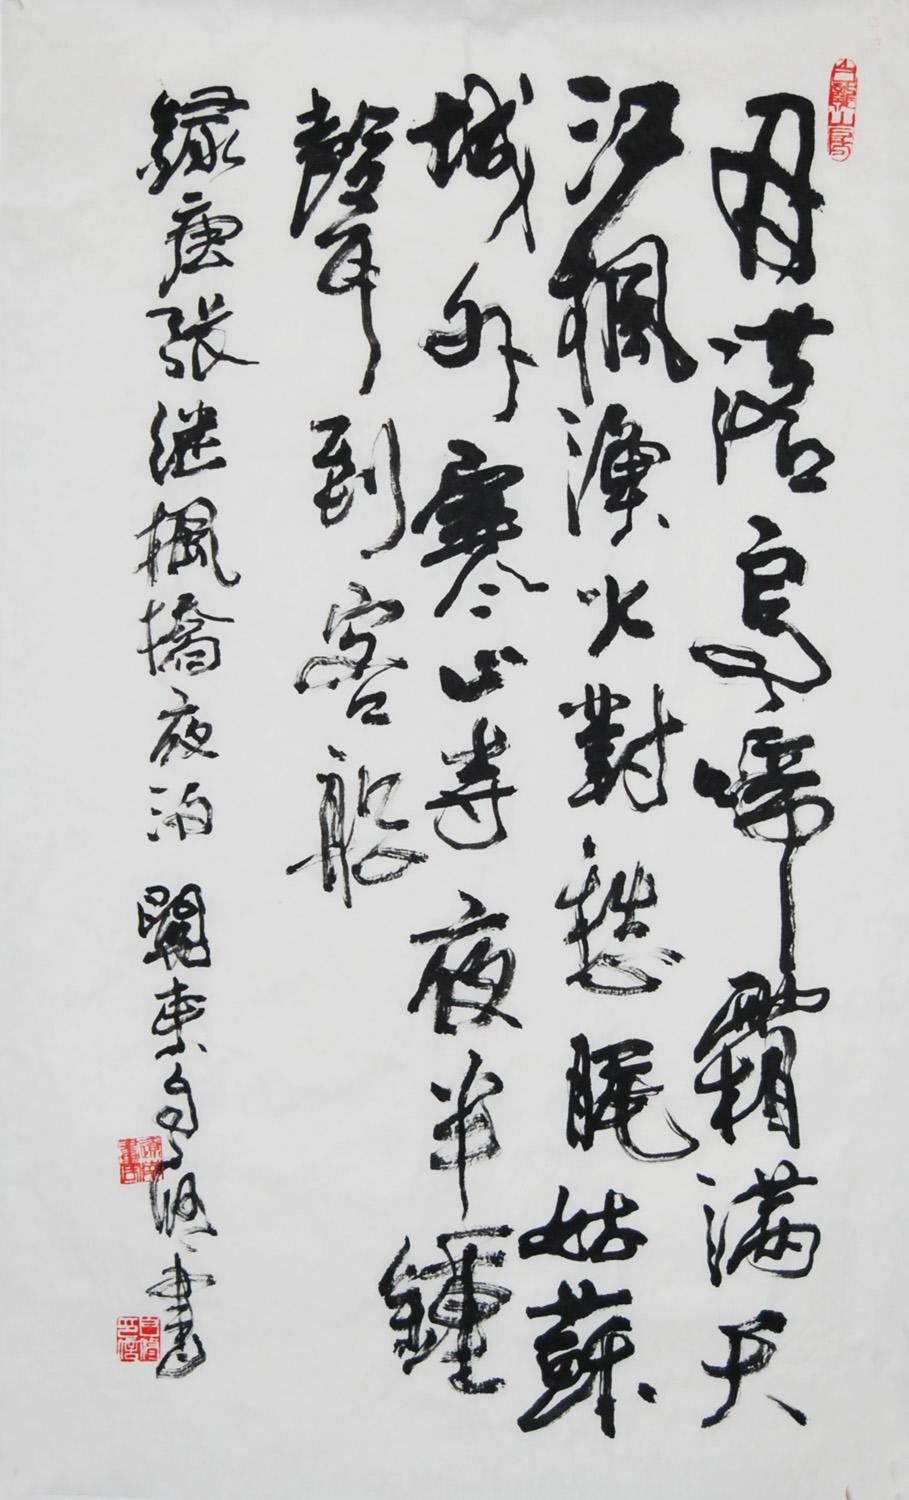 月落烏啼霜滿天
江楓漁火對愁眠姑蘇
城外寒山寺夜半鍾
聲到客船
録唐張继楓橋夜泊 關東 書